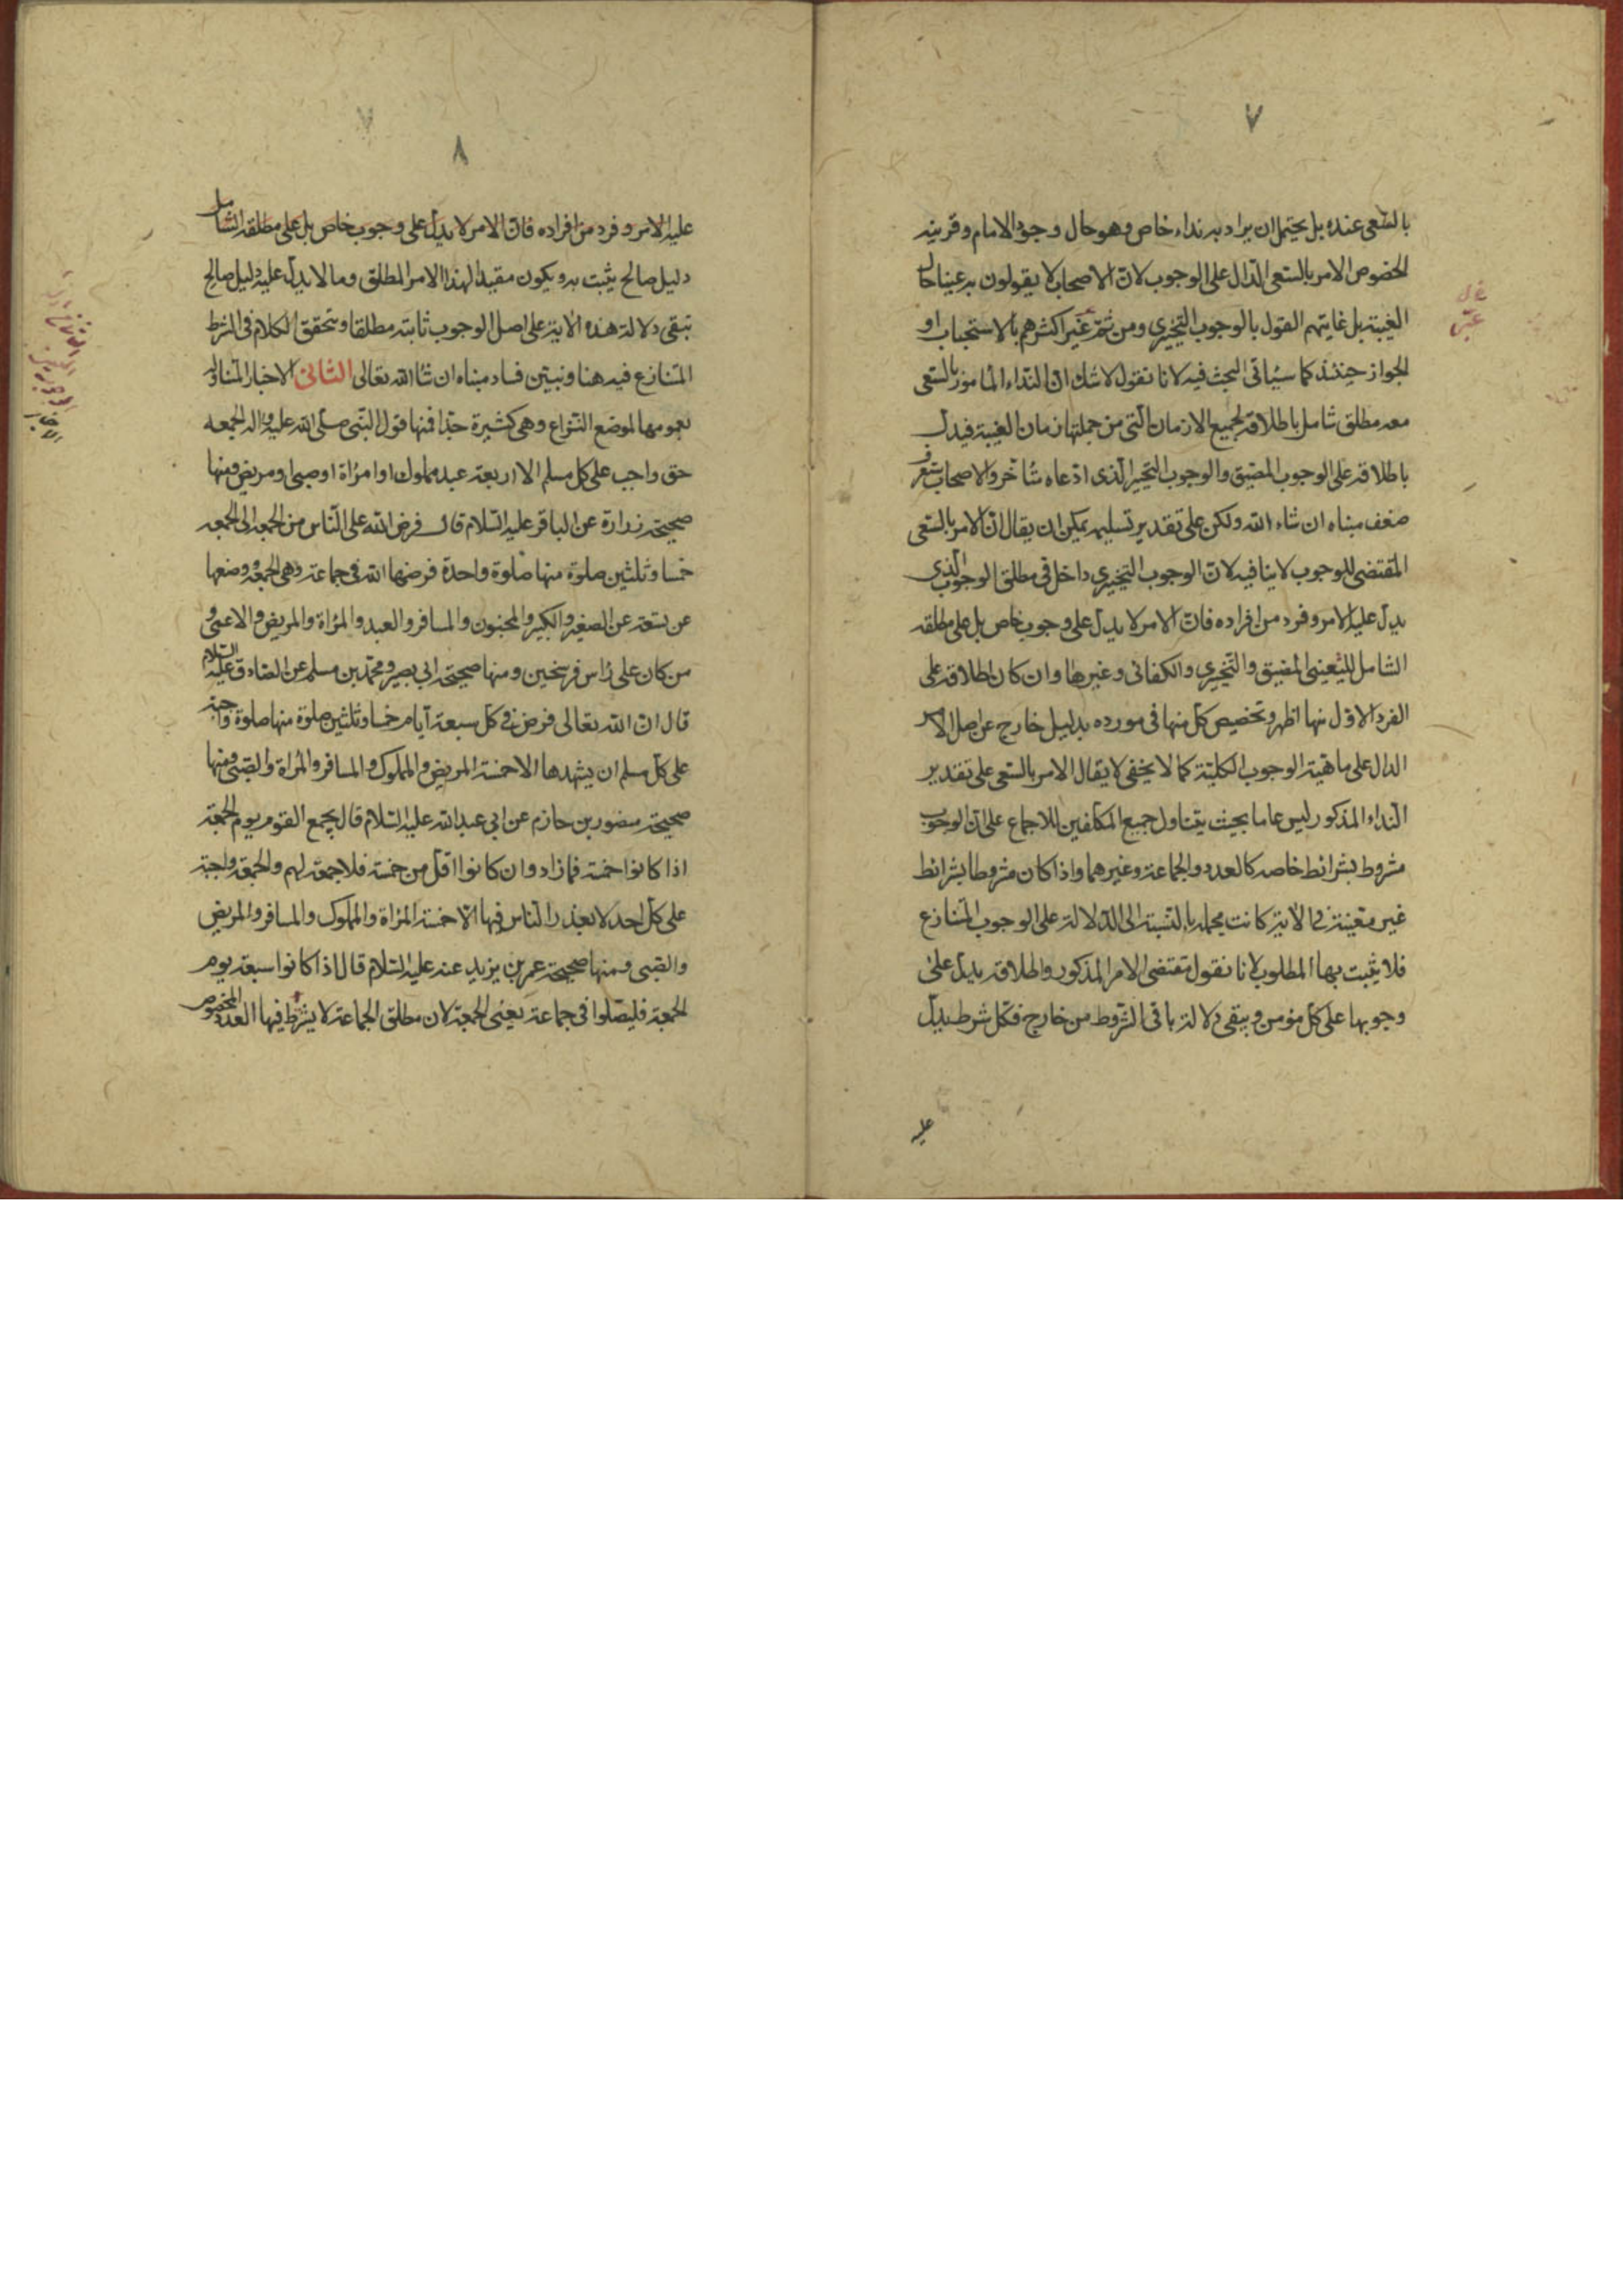 ٧
بالسعى عنده بل يحتمل ان يراد به نداء خاص وهو حال وجود الامام وقرينه
الخصوص الامر بالسعى الدال على الوجوب لان الاصحاب لا يقولون به عينا حال
الغيبة بل غايتهم القول بالوجوب التخييرى ومن ثم عبر اكثرهم بالاستحباب او
الجواز حينئذ كما سياتى البحث فيه لانا نقول لا شك ان النداء المامور بالسعى
معه مطلق شامل باطلاقه لجميع الازمان التى من جملتها زمان الغيبة فيدل
باطلاقه على الوجوب المضيق والوجوب التخيير الذى ادعاه متاخروا الاصحاب ستعرف
ضعف مبناه ان شاء الله ولكن على تقدير تسليمه يمكن ان يقال ان الامر بالسعى
المقتضى للوجوب لا ينافيه لان الوجوب التخييرى داخل فى مطلق الوجوب الذى
يدل عليه الامر وفرد من افراده فان الامر لا يدل على وجوب خاص بل على مطلقه
الشامل للتعينى المضيق والتخييرى والكفائى وغيرها وان كان اطلاقه على
الفرد الاول منها اظهر وتخصيص كل منها فى مورده بدليل خارج عن اصل الامر
الدال على ماهية الوجوب الكلية كما لا يخفى لا يقال الامر بالسعى على تقدير
النداء المذكور ليس عاما بحيث يتناول جميع المكلفين للاجماع على ان الوجوب
مشروط بشرائط خاصه كالعدد والجماعة وغيرهما واذا كان مشروطا بشرائط
غير معينة فى الاية كانت مجملة بالنسبة الى الدلالة على الوجوب المتنازع
فلا يثبت بها المطلوب لانا نقول مقتضى الامر المذكور واطلاقه يدل على
وجوبها على كل مؤمن ويبقى دلالة باقى الشروط من خارج فكل شرط يدل
عليه
عبر
٨
عليه الامر وفرد من افراده فان الامر لا يدل على وجوب خاص بل على مطلقه الشامل
دليل صالح يثبت به ويكون مقيدا لهذا الامر المطلق وما لا يدل عليه دليل صالح
تبقى دلالة هذه الاية على اصل الوجوب ثابته مطلقا وتحقق الكلام فى الشرط
المتنازع فيه هنا ونبين فساد مبناه ان شاء الله تعالى الثانى الاخبار المتناولة
بعمومها لموضع النزاع وهى كثيرة جدا فمنها قول النبى صلى الله عليه واله الجمعه
حق واجب على كل مسلم الا اربعة عبد مملوك او امراة او صبى او مريض ومنها
صحيحة زرارة عن الباقر عليه السلام قال فرض الله على الناس من الجمعة الى الجمعه
خمسا وثلثين صلوة منها صلوة واحدة فرضها الله فى جماعة وهى الجمعة ووضعها
عن تسعة عن الصغير والكبير والمجنون والمسافر والعبد والمراة والمريض والاعمى و
من كان على راس فرسخين ومنها صحيحة ابى بصير ومحمد بن مسلم عن الصادق عليه السلام
قال ان الله تعالى فرض فى كل سبعة ايام خمسا وثلثين صلوة منها صلوة واجبة
على كل مسلم ان يشهدها الا خمسة المريض والمملوك والمسافر والمراة والصبى ومنها
صحيحة منصور بن حازم عن ابى عبد الله عليه السلام قال يجمع القوم يوم الجمعة
اذا كانوا خمسة فما زاد وان كانوا اقل من خمسة فلا جمعة لهم والجمعة واجبة
على كل احد لا يعذر الناس فيها الا خمسة المراة والمملوك والمسافر والمريض
والصبى ومنها صحيحة عمر بن يزيد عنه عليه السلام قال اذا كانوا سبعة يوم
الجمعة فليصلوا فى جماعة يعنى الجمعة لان مطلق الجماعة لا يشترط فيها العدد المخصوص